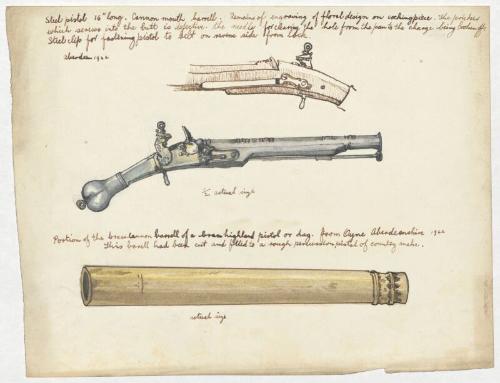 Steel pistol 16" long. Cannon mouth barrell. Remains of engraving of floral design on cockingpiece. The pricker
which screws into the butt is defective. The needle for clearing the hole from the pan to the charge being broken off,
Steel clip for fastening pistol to belt on reverse side from lock.
Aberdeen 1922
½ actual size
Portion of the brass cannon barrell of a brass highland pistol or dag. From Oyne Aberdeenshire 1922
This barell had been cut and fitted to a rough percussion pistol of country make.
actual size